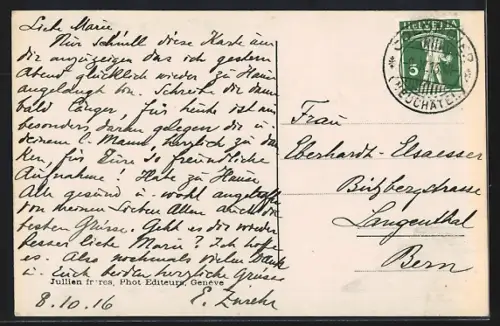 Liebe Marie
Nur schnell diese Karte um
dir anzuzeigen das ich gestern
Abend glücklich wieder zu Hause
angelangt bin. Schreibe dir dann
bald länger, für heute ist mir
besonders daran gelegen dir u.
deinem l. Mann, herzlich zu dan
ken, für Eure so freundliche
Aufnahme! Habe zu Hause
Alle gesund u. wohl angetroffen
von meinen Lieben Allen auch die
besten Grüsse. Geht es dir wieder
besser liebe Marie? Ich hoffe
es. Also nochmals vielen Dank
u. Euch beiden herzliche Grüsse
Jullien frères, Phot Editeurs, Genève
8.10.16
E.
HELVETIA
5
(NEUCHÂTEL)
Frau
Eberhardt-Elsaesser
Bützbergstrasse
Langenthal
Bern